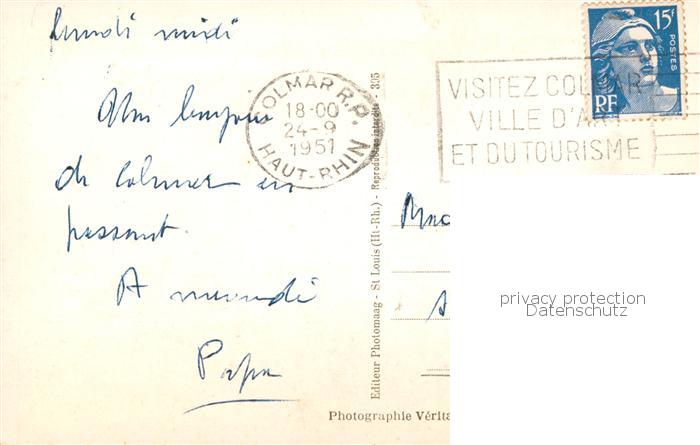 lundi midi
15F
POSTES
RF
COLMAR R.P.
18-00
24-9
1951
HAUT-RHIN
VISITEZ COLMAR
VILLE D'ART
ET DU TOURISME
bonjour
de Colmar en
passant.
A
Papa
Editeur Photomaag - St Louis (Ht-Rh.) - Reproduction interdite 395
Photographie Vérita
privacy protection
Datenschutz